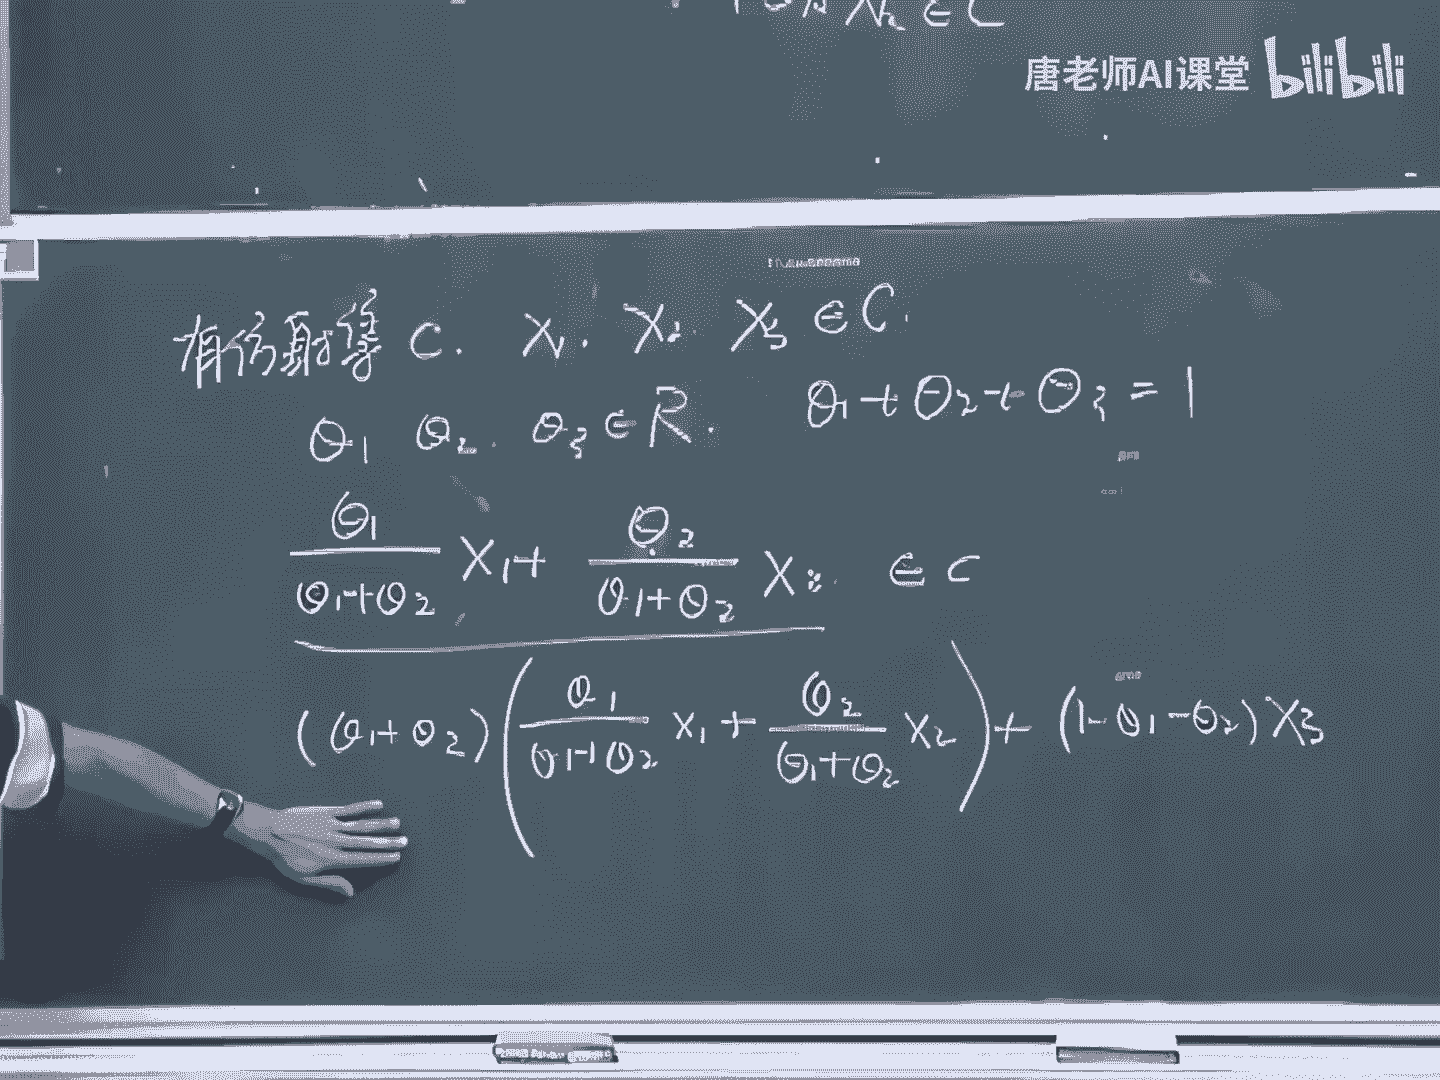 X₂ ∈ C
唐老师AI课堂 bilibili
有仿射集 C. X₁. X₂. X₃ ∈ C.
θ₁ θ₂. θ₃ ∈ R. θ₁+θ₂+θ₃ = 1
θ₁/(θ₁+θ₂) X₁ + θ₂/(θ₁+θ₂) X₂ ∈ C
(θ₁+θ₂)(θ₁/(θ₁+θ₂) X₁ + θ₂/(θ₁+θ₂) X₂) + (1-θ₁-θ₂)X₃